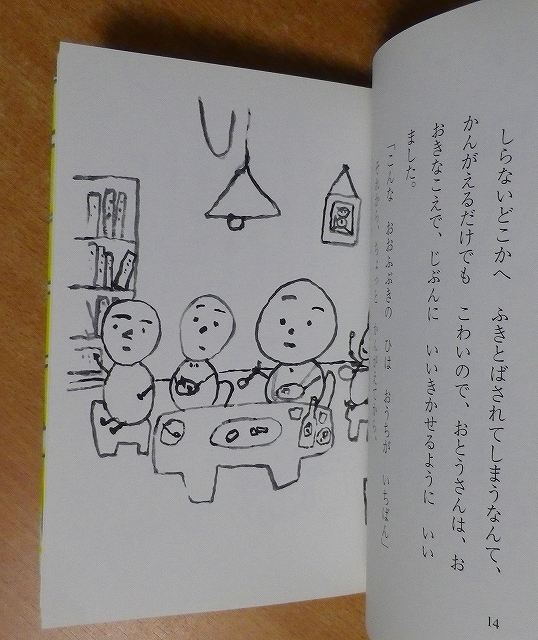 しらないどこかへ　ふきとばされてしまうなんて、
かんがえるだけでも　こわいので、おとうさんは、お
おきなこえで、じぶんに　いいきかせるように　いい
ました。
「こんな　おおふぶきの　ひは　おうちが　いちばん」
それから、ちょっと　かんがえてから、
14